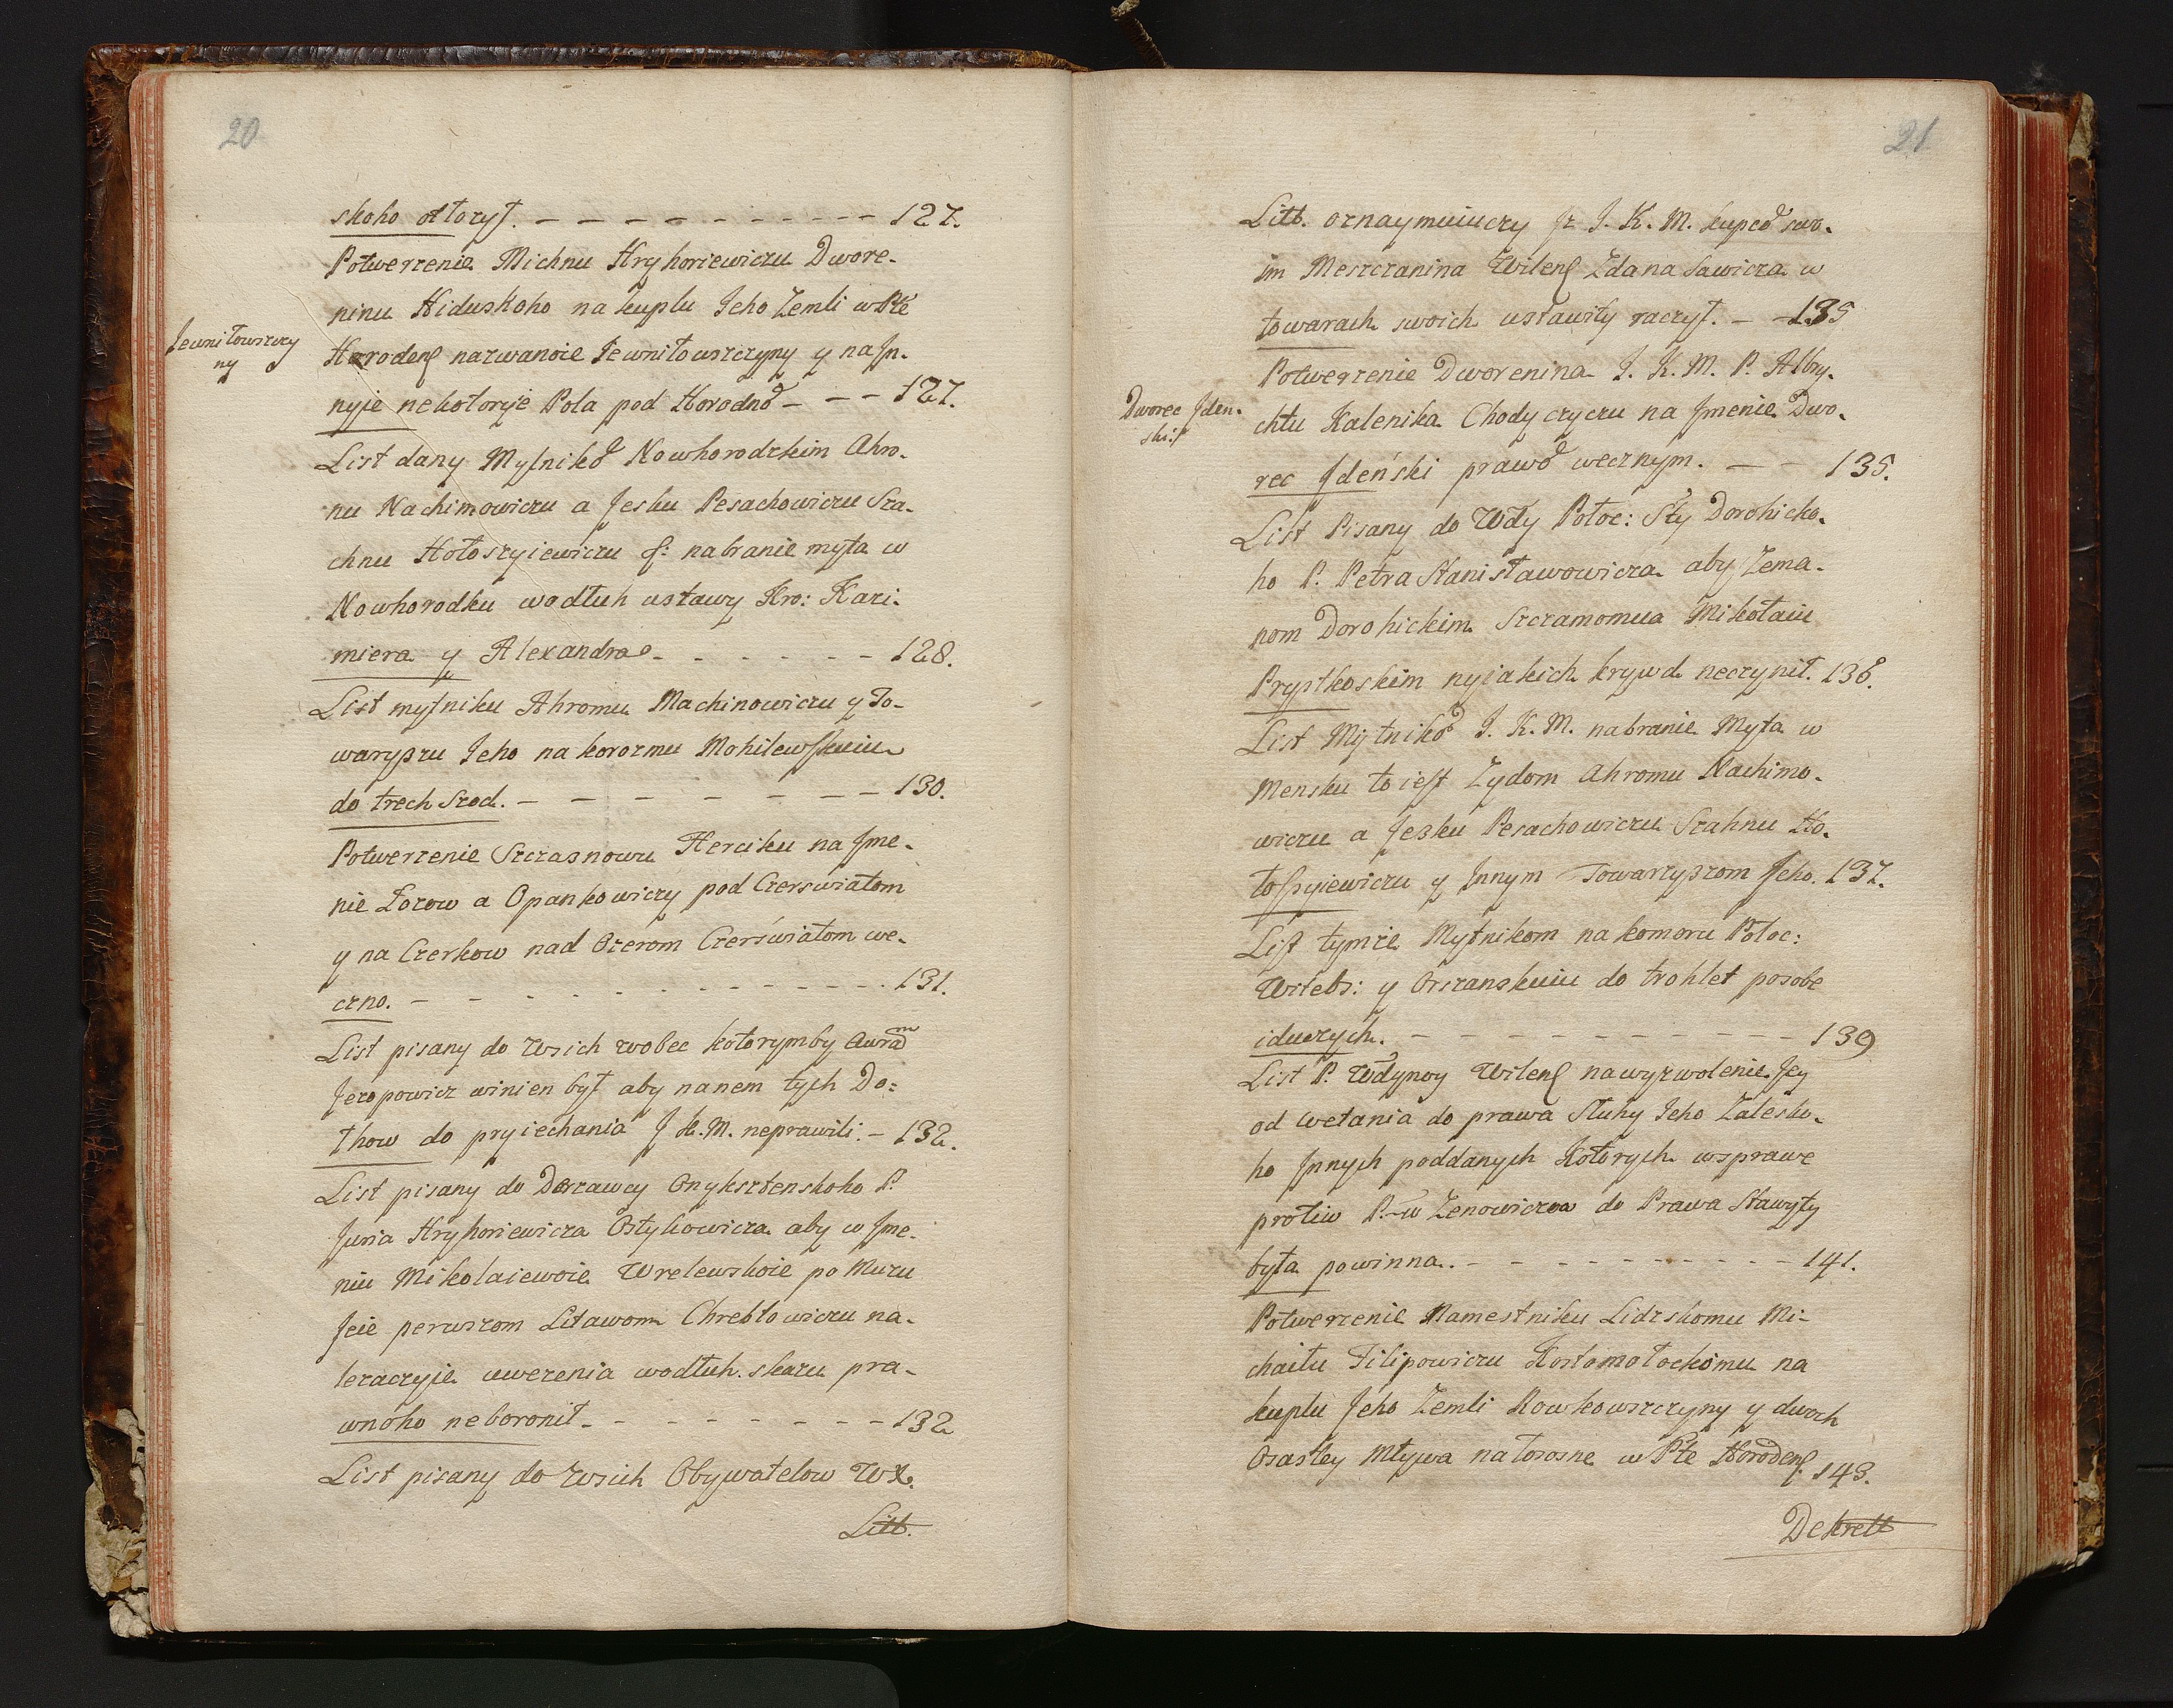 20
skoho otłożyt. — — — — — — — 127.
Potwerżenie Michnu Hryhoriewiczu Dwore-
ninu Hiduskoho na kuplu Jeho Zemli w Pte
Jewniłowszczy
ny
Horodens nazwanoie Jewniłowszczyny y na In-
nyje nekotoryie Pola pod Horodno — — — 127.
List dany Mytniko Nowhorodzkim Ahro-
nu Nachimowiczu a Jesku Pesachowiczu Sza-
chnu Hołoszyiewiczu f: na branie myta w
Nowhorodku wodłuh ustawy Kro: Kazi-
miera y Alexandra - - - - - - 128.
List mytniku Ahromu Machinowiczu y To-
waryszu Jeho na korozmu Mohilewskuiu
do trech Szod. — — — — — — — 130.
Potwerzenie Szczasnowu Herciku na Jme-
nie Łozow a Opankowiczy pod Czerswiatom
y na Czerkow nad Ozerom Czerświatom we-
czno. - - - - - - - - - - - 131.
List pisany do Wsich wobec kotorymby Awram
Jezopowicz winien był aby na nem tych Do=
lhow do pryiechania J K. M. neprawili. - 132.
List pisany do Derzawcy Onyksztenskoho P.
Juria Hryhoriewicza Ostykowicza aby w Jme-
niu Mikolaiewoie Wrelewskoie po Muzu
Jeie perwszom Litawom Chrebtowiczu na-
lezaczyie uwezenia wodłuh skazu pra-
wnoho neboronił - - - - - - - 132
List pisany do Wsich Obywatelow WX.
Litt.
21
Litt. oznaymuiuczy iz J. K. M. kupco swo-
im Meszczanina Wilens Zdana Sawicza w
towarach swoich ustawity raczył. — - 135
Potwerzenie Dworenina J. K. M. P. Albry-
Dworec Jden-
ski
chtu Kalenika Chodyczyczu na Jmenie Dwo-
rec Jdeński prawo wecznym. — — 135.
List Pisany do Wdy Połoc: Sty Dorohicko-
ho P. Petra Stanisławowicza aby Zema-
nom Dorohickim Szczamomua Mikołaiu
Prystkoskim nyiakich krywd neczynił. 136.
List Mytniko J. K. M. na branie Myta w
Mensku to iest Zydom Ahromu Nachimo-
wiczu a Jesku Pesachowiczu Szahnu Ho-
łoszyiewiczu y Jnnym Towarzyszom Jeho. 137.
List tymże Mytnikom na komoru Połoc:
Witebs: y Orszanskuiu do trohlet posobe
iduczych. - - - - - - - - - - 139
List P. Wdynoy Wilens na wyzwolenie Jey
od wetania do prawa Sluhy Jeho Zalesko-
ho Jnnych poddanych Kotorych w sprawe
protiw P-w Zenowiczow do Prawa Stawyty
była powinna. - - - - - - - - - 141.
Potwerzenie Namestniku Lidzskomu Mi-
chaiłu Filipowiczu Hostomołockomu na
kuplu Jeho Zemli Kowkowszczyny y dwoch
Osastey Mływa na Łosośne w Pte Horodens. 143.
Dekrett